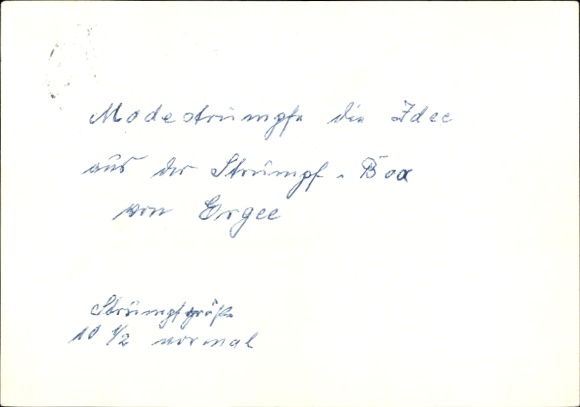 Modestrümpfe die Idee
aus der Strumpf-Box
von Ergee
Strumpfgröße
10 1/2 normal